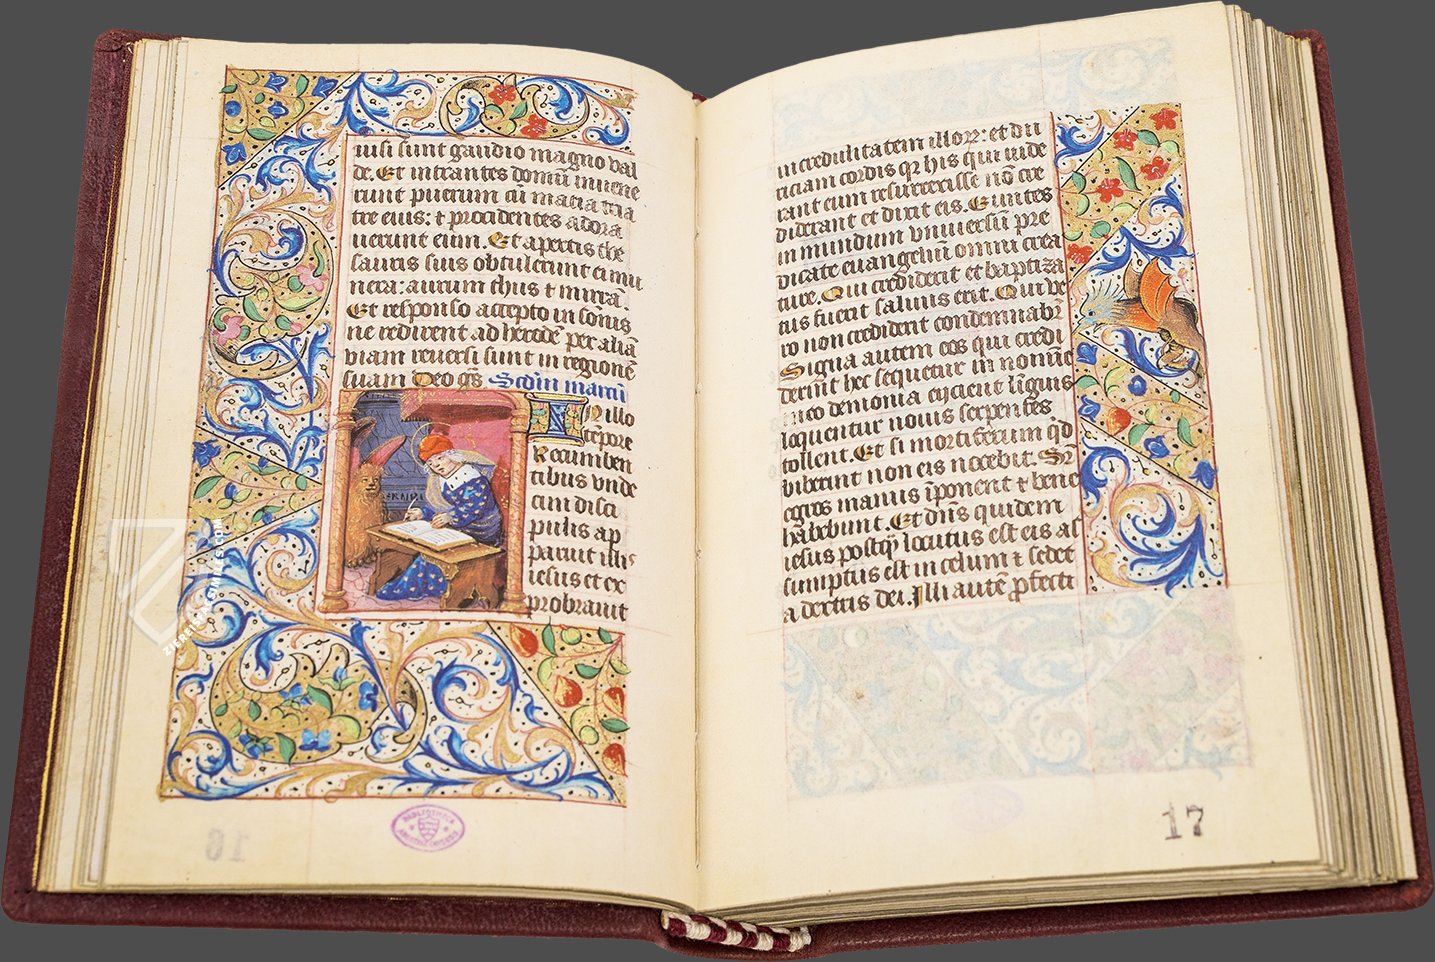 uisi sunt gaudio magno val
de. Et intrantes domū inuene
runt puerum cū maria ma
tre eius: et procidentes adora
uerunt eum. Et apertis the
sauris suis obtulerunt ei mu
nera: aurum thus et mirrā.
Et responso accepto in sōnis
ne redirent ad herodē per aliā
viam reuersi sunt in regionē
suam Deo grs Scdm marcū
In illo
tēpore
Recumben
tibus vnde
cim disci
pulis ap
paruit illis
iesus et ex
probrauit
16
incredulitatem illorꝝ: et du
riciam cordis qꝛ his qui uide
rant eum resurrexisse nō cre
diderant et dixit eis. Euntes
in mundum vniuersū pre
dicate euangeliū omni crea
ture. Qui crediderit et baptiza
tus fuerit saluus erit. Qui ve
ro non crediderit condemnabr̄
Signa autem eos qui credi
derint hec sequetur in nomīe
meo demonia eijcient linguis
loquentur nouis serpentes
tollent. Et si mortiferum qd
biberint non eis nocebit. Sr
egros manus īponent et bene
habebunt. Et dn̄s quidem
iesus postq̄ locutus est eis as
sumptus est in celum et sedet
a dextris dei. Illi autē ꝓfecti
17
ZIEREIS FACSIMILES.COM